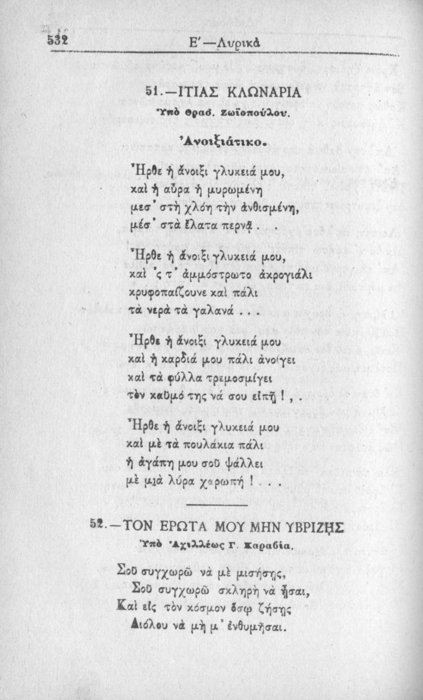 532
Ε' —Λυρικὰ
51.—ΙΤΙΑΣ ΚΛΩΝΑΡΙΑ
Ὑπὸ Θρασ. Ζωϊοπούλου.
Ἀνοιξιάτικο.
Ἦρθε ἡ ἄνοιξι γλυκειά μου,
καὶ ἡ αὔρα ἡ μυρωμένη
μεσ' στὴ χλόη τὴν ἀνθισμένη,
μέσ' στὰ ἔλατα περνᾷ . . .
Ἦρθε ἡ ἄνοιξι γλυκειά μου,
καὶ 'ς τ' ἀμμόστρωτο ἀκρογιάλι
κρυφοπαίζουνε καὶ πάλι
τὰ νερὰ τὰ γαλανά . . .
Ἦρθε ἡ ἄνοιξι γλυκειά μου
καὶ ἡ καρδιά μου πάλι ἀνοίγει
καὶ τὰ φύλλα τρεμοσμίγει
τὸν καϋμό της νά σου εἰπῇ ! , .
Ἦρθε ἡ ἄνοιξι γλυκειά μου
καὶ μὲ τὰ πουλάκια πάλι
ἡ ἀγάπη μου σοῦ ψάλλει
μὲ μιὰ λύρα χαρωπή ! . . .
52.—ΤΟΝ ΕΡΩΤΑ ΜΟΥ ΜΗΝ ΥΒΡΙΖῌΣ
Ὑπὸ Ἀχιλλέως Γ. Καραβία.
Σοῦ συγχωρῶ νὰ μὲ μισήσῃς,
Σοῦ συγχωρῶ σκληρὴ νὰ ᾖσαι,
Καὶ εἰς τὸν κόσμον ὅσῳ ζήσῃς
Διόλου νὰ μὴ μ' ἐνθυμῆσαι.